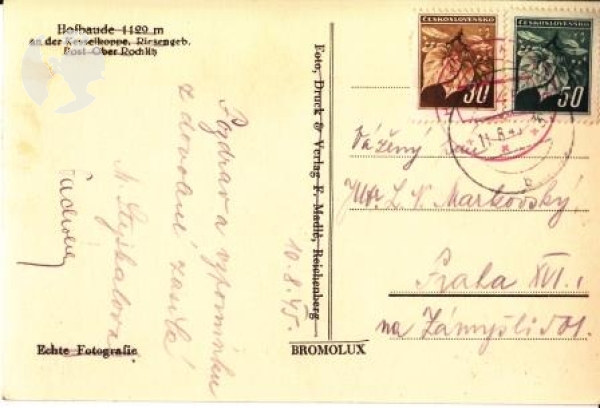 Hofbaude 1420 m
an der Kesselkoppe, Riesengeb.
Post Ober Rochlitz
Pozdrav a vzpomínku
z dovolené zasílá
10.8.45.
Echte Fotografie
Foto, Druck & Verlag F. Madlé, Reichenberg
BROMOLUX
ČESKOSLOVENSKO
30
ČESKOSLOVENSKO
50
Vážený pan
L. V. Markovský
Praha XVI.
na Zámyšli 501.